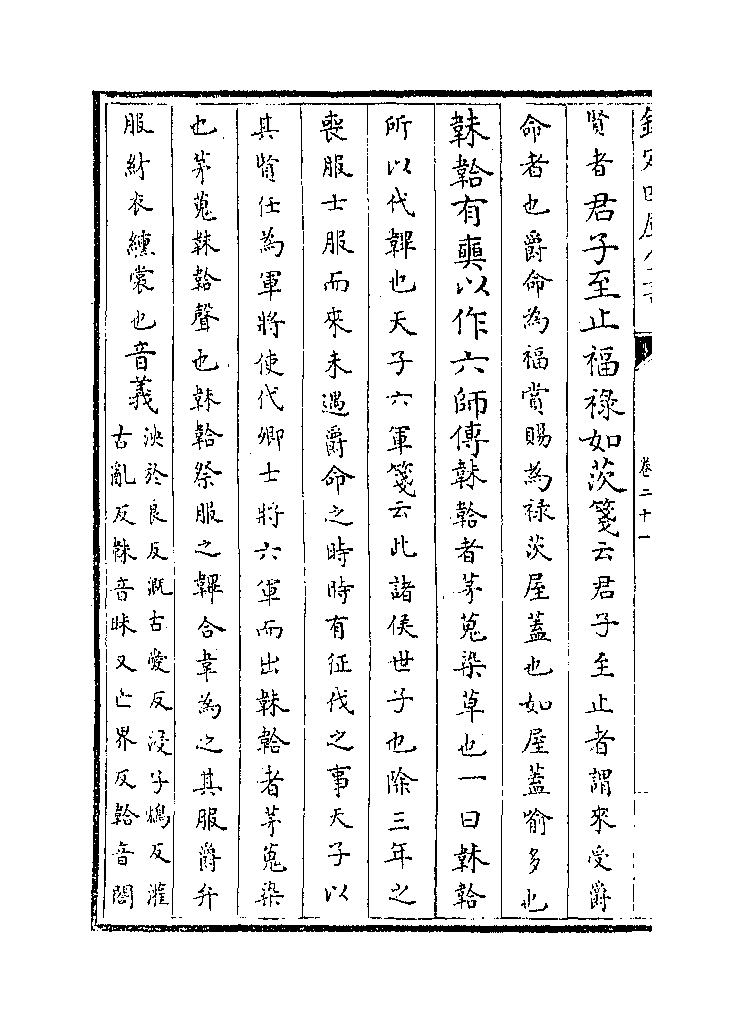 欽定四庫全書
卷二十一
賢者君子至止福祿如茨箋云君子至止者謂來受爵
命者也爵命為福賞賜為祿茨屋蓋也如屋蓋喻多也
韎韐有奭以作六師傳韎韐者茅蒐染草也一曰韎韐
所以代韠也天子六軍箋云此諸侯世子也除三年之
喪服士服而來未遇爵命之時時有征伐之事天子以
其賢任為軍將使代卿士將六軍而出韎韐者茅蒐染
也茅蒐韎韐聲也韎韐祭服之韠合韋為之其服爵弁
服紂衣纁裳也音義泱於良反溉古愛反浸子鴆反灌
古亂反韎音昧又亡界反韐音閤